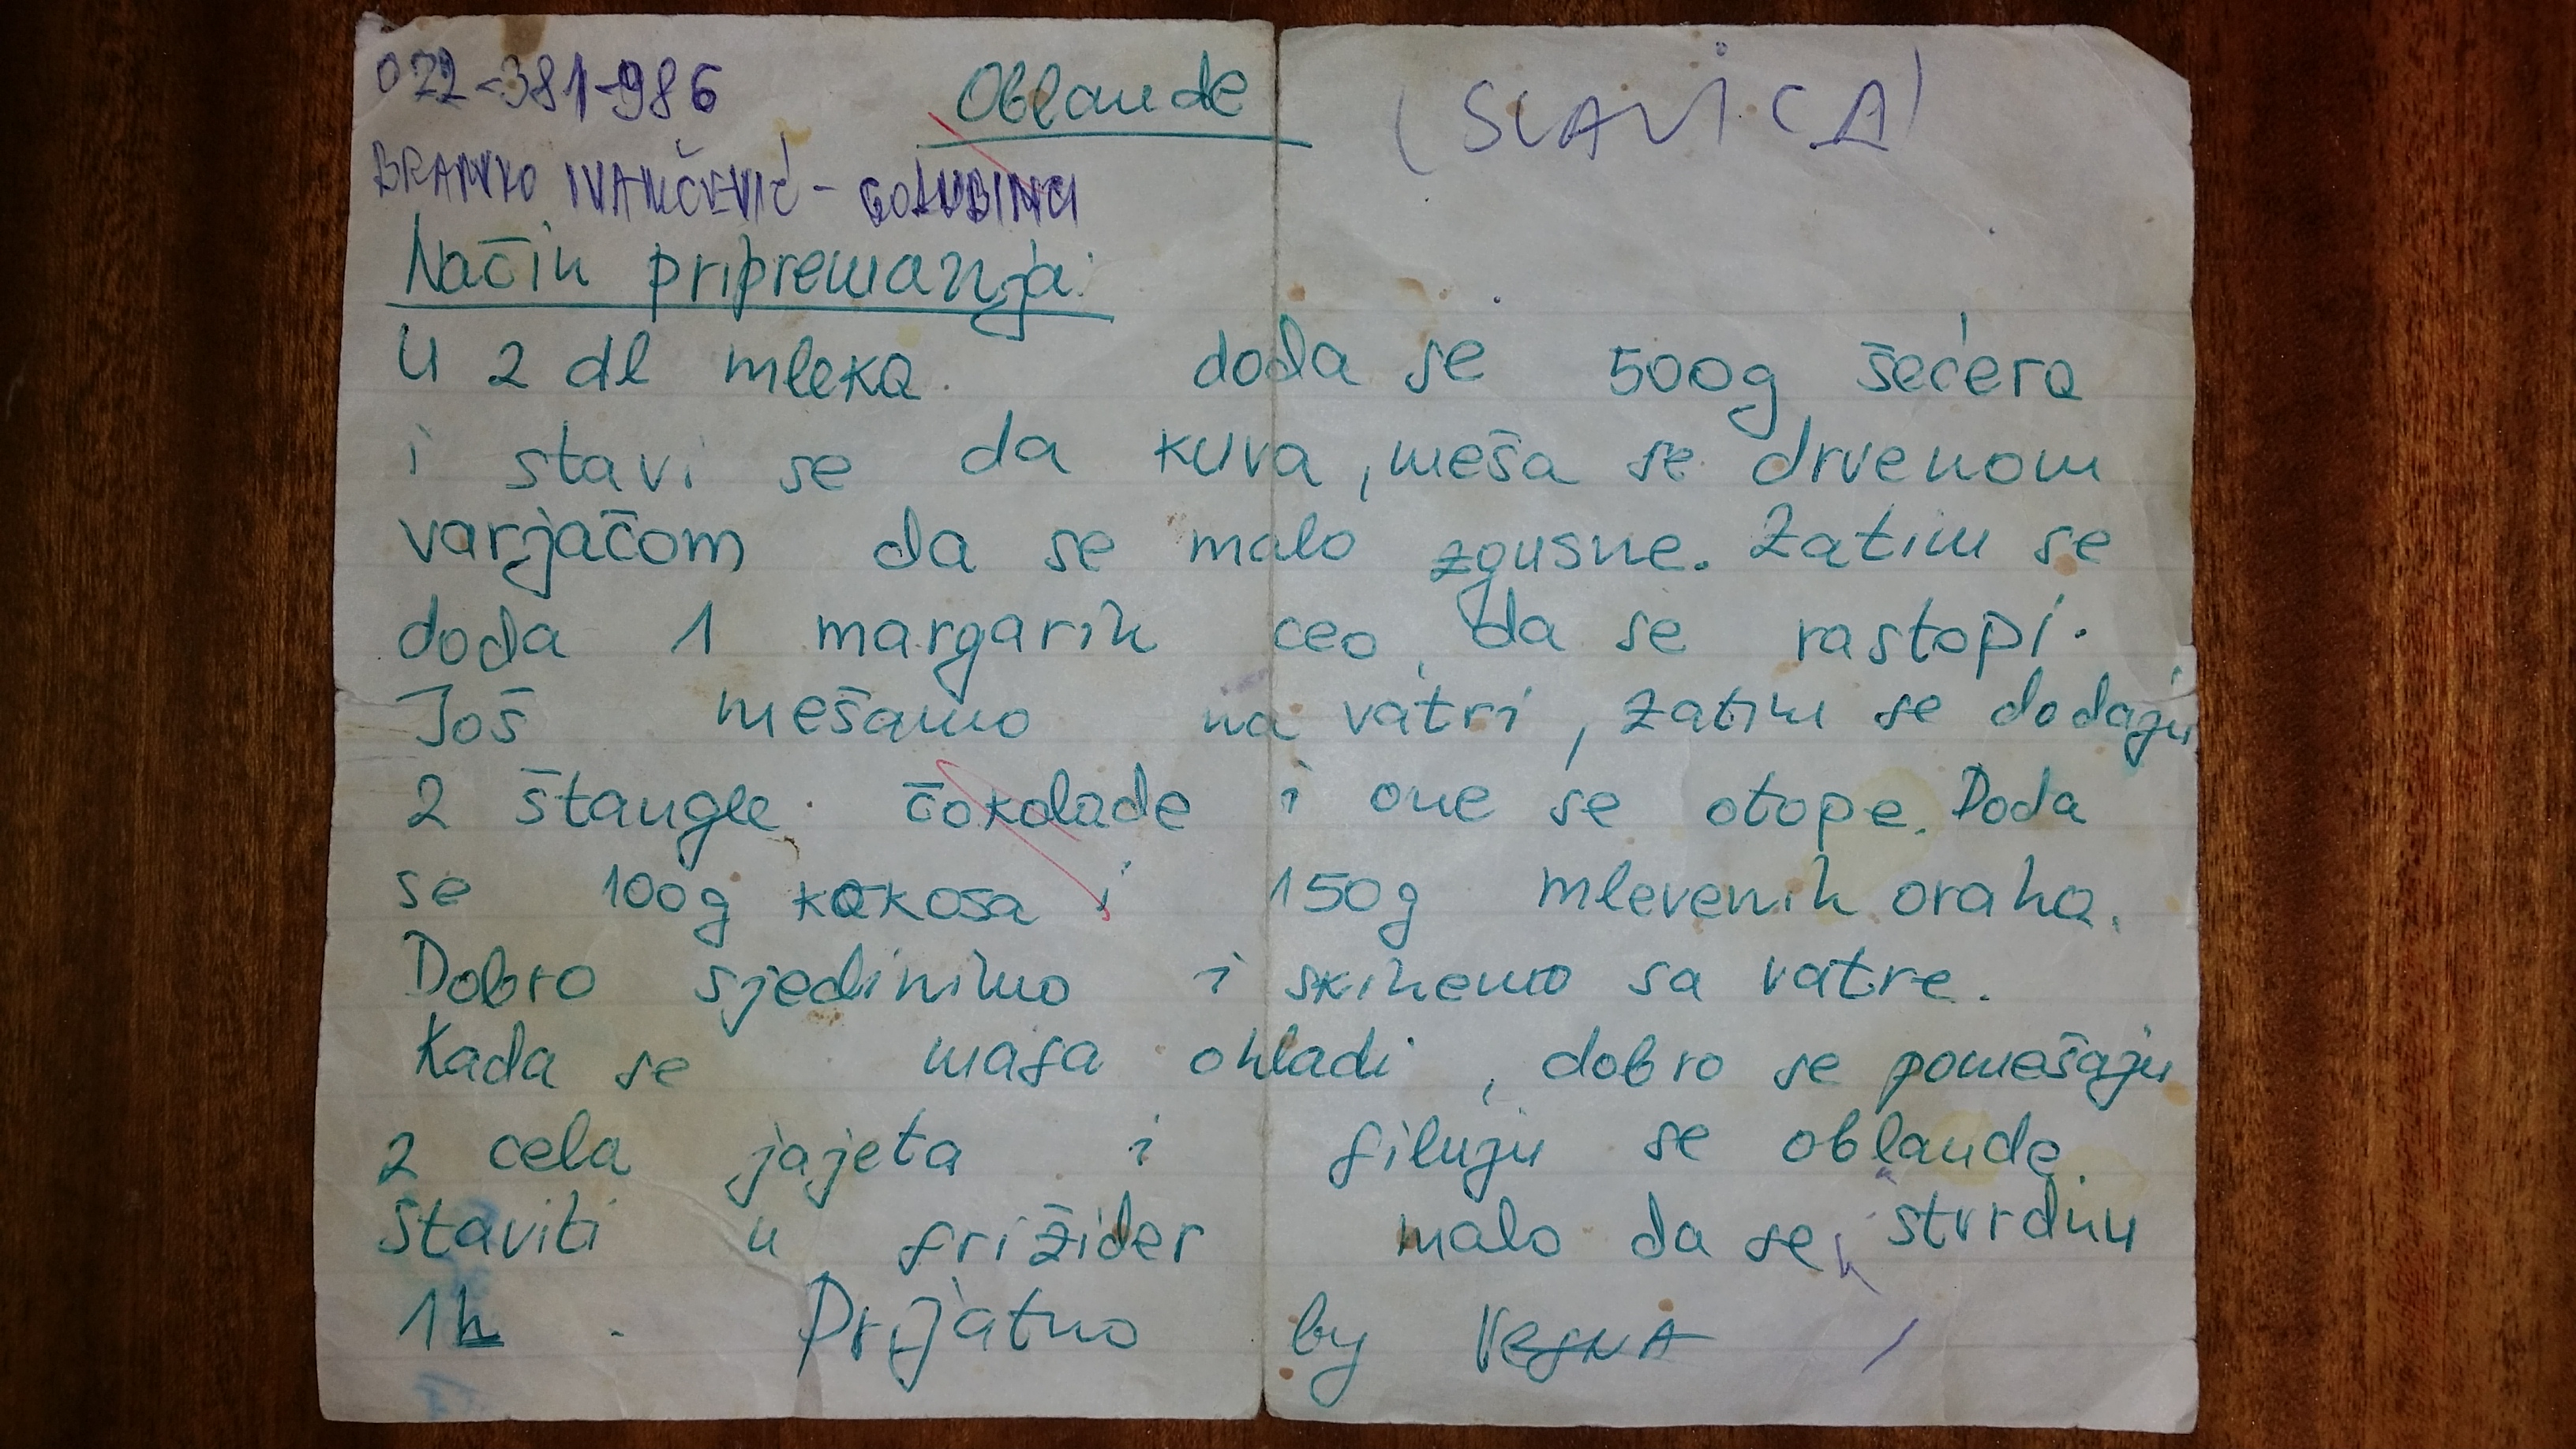 022-381-986
Oblande
(SLAVICA)
BRANKO IVANČEVIĆ - GOLUBINCI
Način pripremanja:
U 2 dl mleka doda se 500g šećera
i stavi se da kuva, meša se drvenom
varjačom da se malo zgusne. Zatim se
doda 1 margarin ceo da se rastopi.
Još mešamo na vatri, zatim se dodaju
2 štangle čokolade i one se otope. Doda
se 100g kokosa i 150g mlevenih oraha.
Dobro sjedinimo i skinemo sa vatre.
Kada se masa ohladi, dobro se pomešaju
2 cela jajeta i filuju se oblande
Staviti u frižider malo da se stvrdnu
1h. Prijatno by VESNA